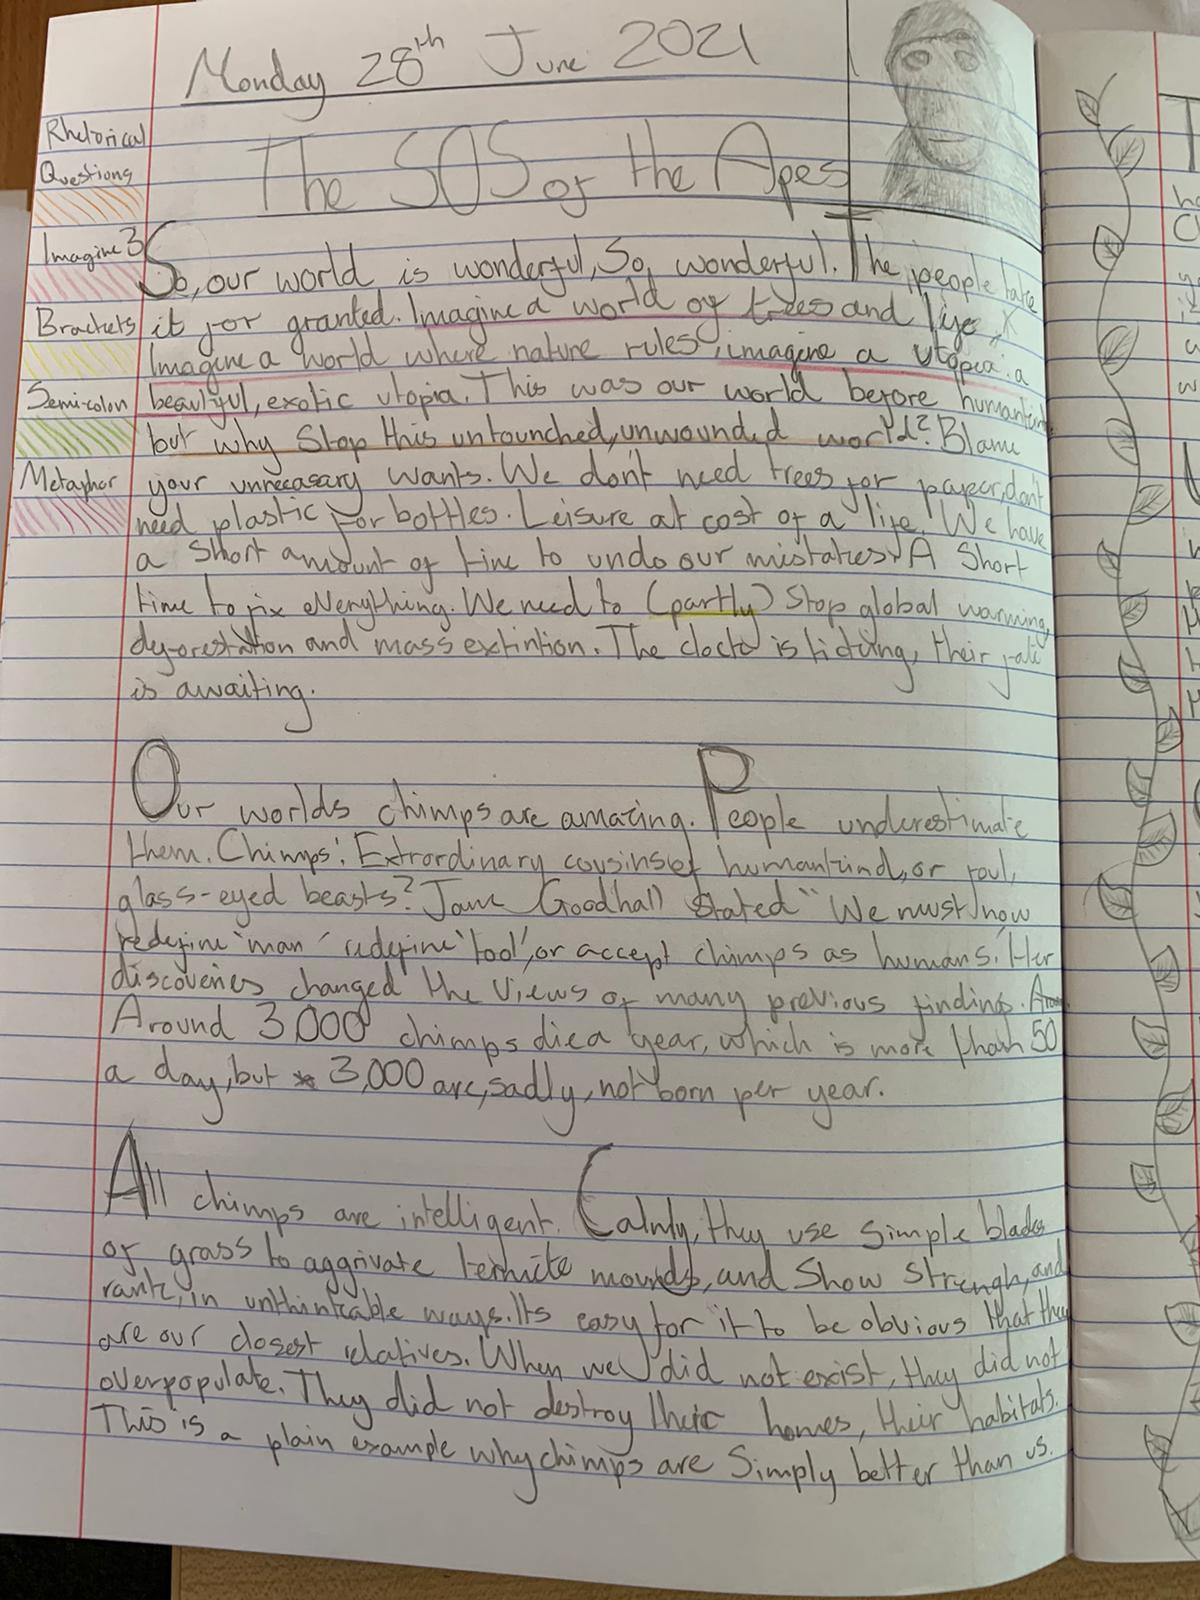 Monday 28th June 2021
The SOS of the Apes
Rhetorical
Questions
Imagine 3
Brackets
Semi-colon
Metaphor
So, our world is wonderful, So, wonderful. The people take
it for granted. Imagine a world of trees and life.
Imagine a world where nature rules, imagine a utopia: a
beautyful, exotic utopia. This was our world before humankind
but why Stop this untounched, unwounded world? Blame
your unnecasary wants. We don't need trees for paper, don't
need plastic for bottles. Leisure at cost of a life. We have
a short amount of time to undo our mistakes. A Short
time to fix everything. We need to (partly) Stop global warming,
deforestation and mass extintion. The clock is ticking, their fate
is awaiting.
Our worlds chimps are amazing. People underestimate
them. Chimps: Extrordinary cousins of humankind, or foul,
glass-eyed beasts? Jane Goodhall Stated "We must now
redefine 'man' redefine 'tool', or accept chimps as humans. Her
discoveries changed the views of many previous findings.
Around 3,000 chimps die a year, which is more than 50
a day, but 3,000 are, sadly, not born per year.
All chimps are intelligent. Calmly, they use simple blades
of grass to aggrivate termite mounds, and Show Strengh, and
rank, in unthinkable ways. Its easy for it to be obvious that they
are our closest relatives. When we did not exist, they did not
overpopulate. They did not destroy their homes, their habitats.
This is a plain example why chimps are Simply better than us.